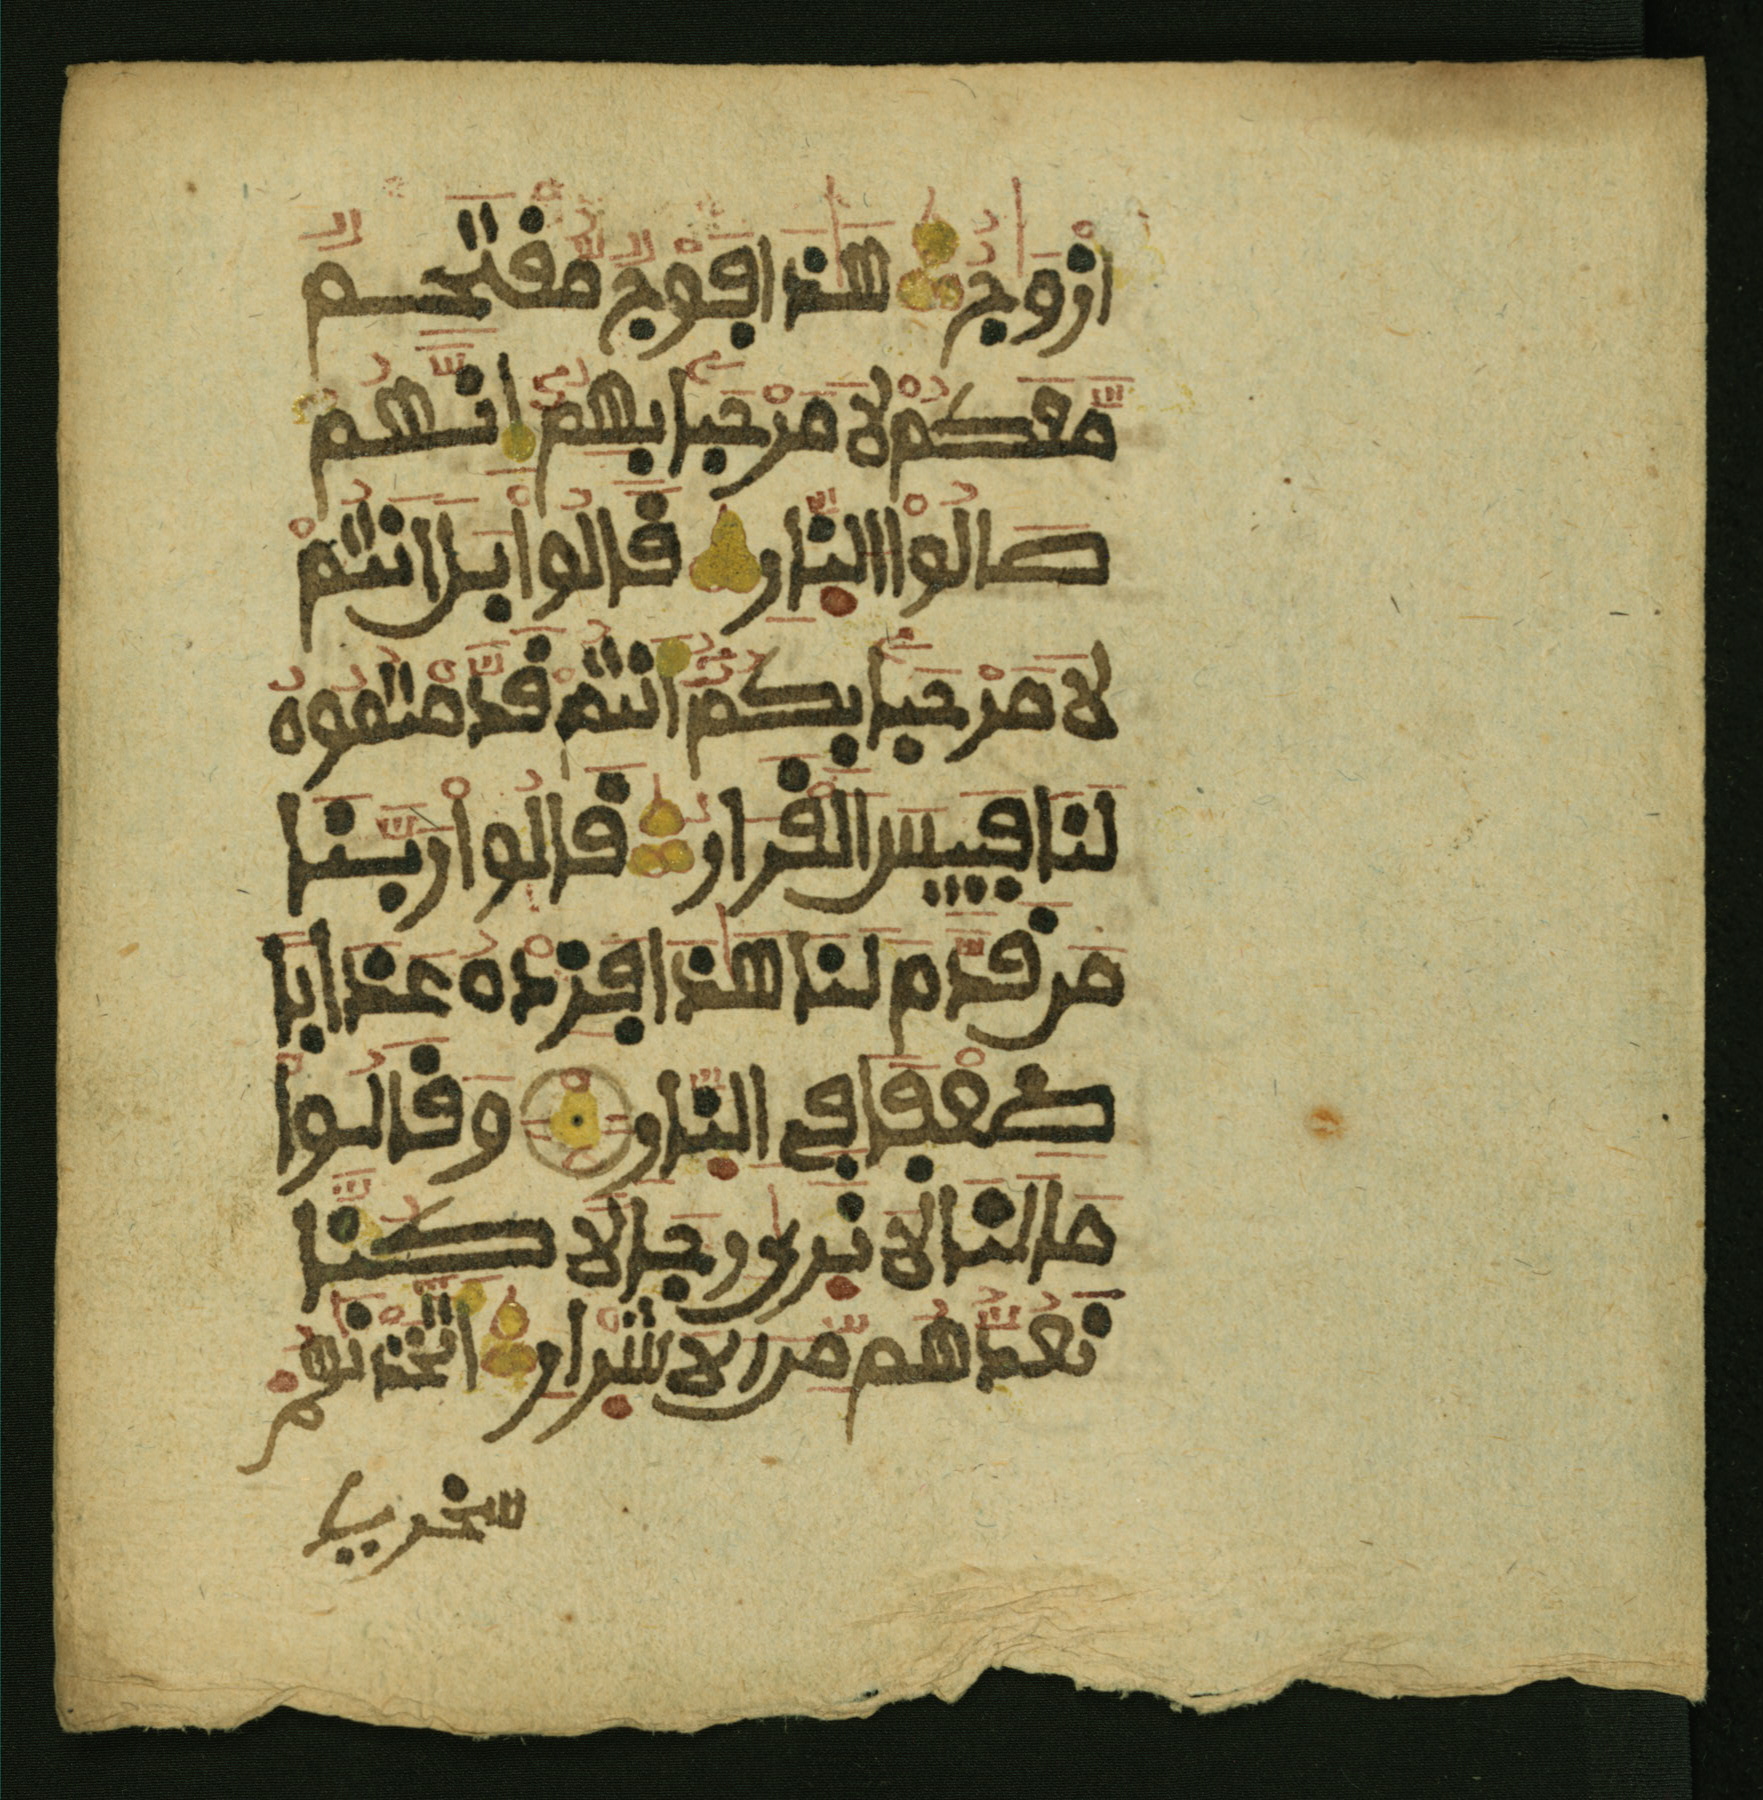 أَزْوَٰجٌ هَٰذَا فَوْجٌ مُّقْتَحِمٌ
مَّعَكُمْ لَا مَرْحَبًا بِهِمُ إِنَّهُمْ
صَالُوا۟ النَّارِ قَالُوا۟ بَلْ أَنتُمْ
لَا مَرْحَبًا بِكُمُ أَنتُمْ قَدَّمْتُمُوهُ
لَنَا فَبِيسَ الْقَرَارُ قَالُوا۟ رَبَّنَا
مَن قَدَّمَ لَنَا هَٰذَا فَزِدْهُ عَذَابًا
ضِعْفًا فِي النَّارِ وَقَالُوا۟
مَا لَنَا لَا نَرَىٰ رِجَالًا كُنَّا
نَعُدُّهُم مِّنَ الْأَشْرَارِ أَتَّخَذْنَٰهُمْ
سخريا